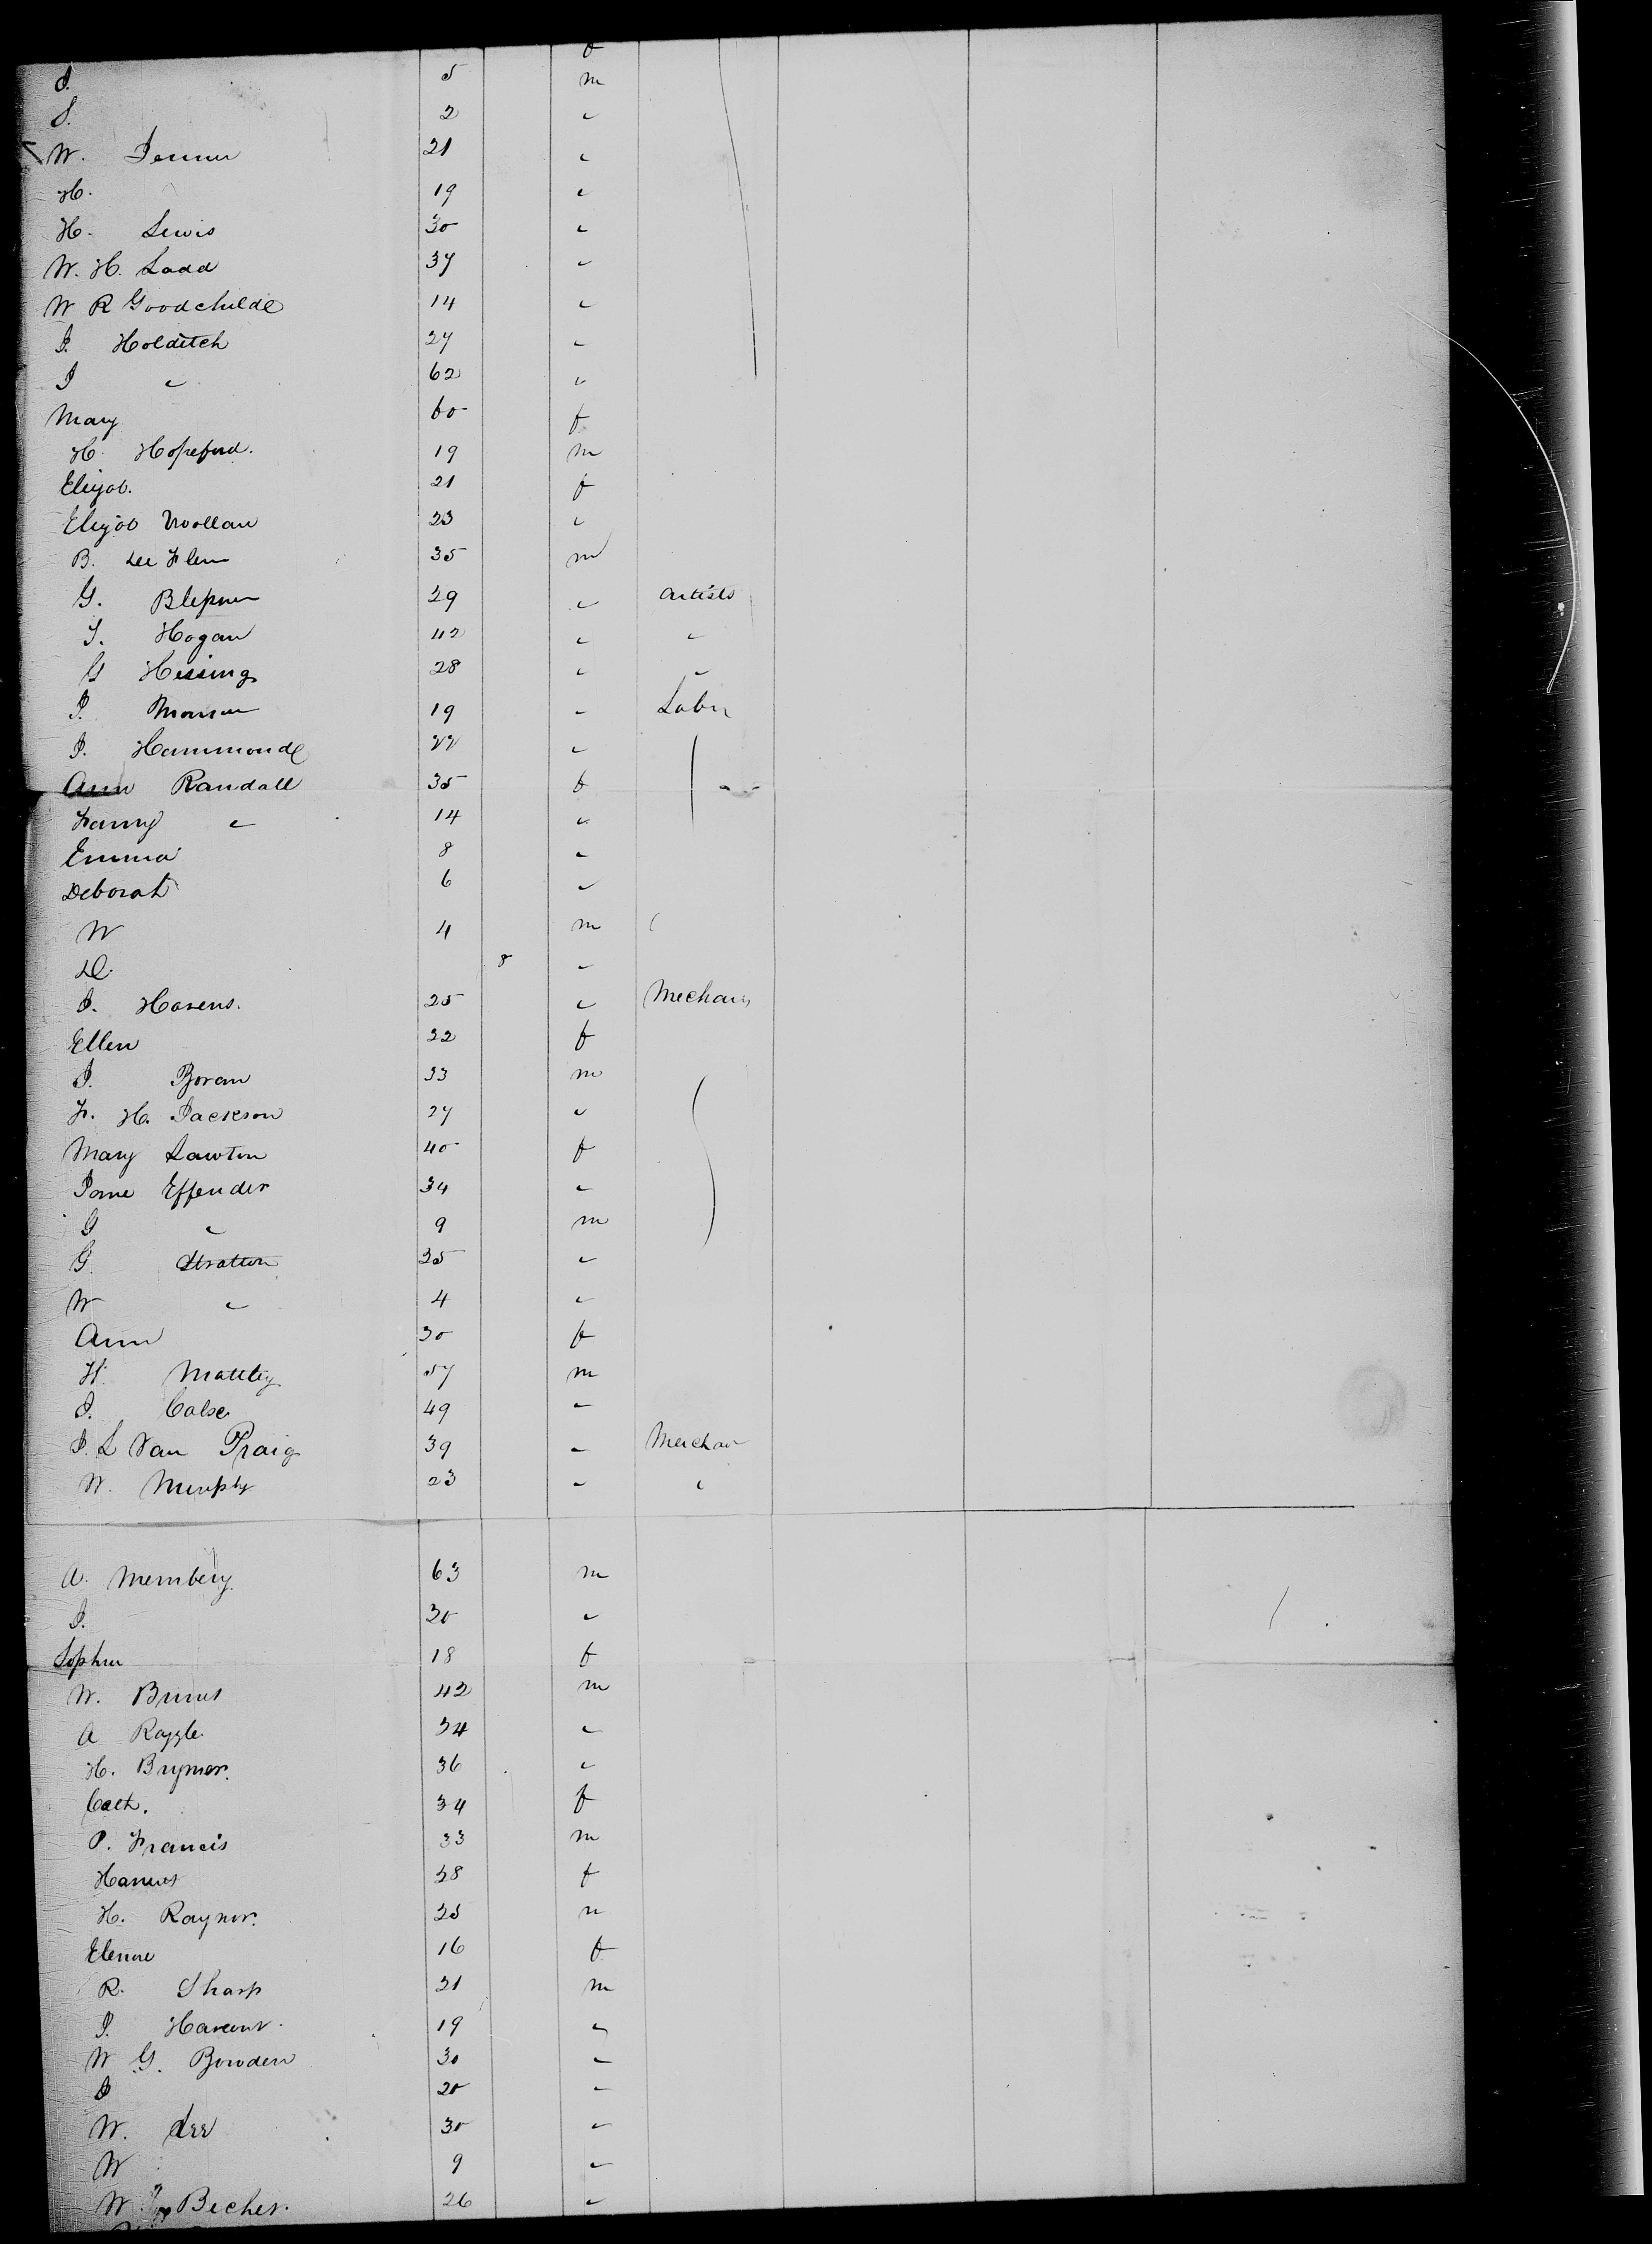 f
J. 5 m
S. 2 "
W. Jenner 21 "
H. 19 "
H. Lewis 30 "
W. H. Ladd 37 "
W R Goodchilde 14 "
J. Holditch 27 "
J " 62 "
Mary 60 f
H. Hopeford. 19 m
Elizab. 21 f
Elizab Woollan 23 "
B. 35 m
G. 29 " Artists
J. Hogan 42 " "
G Hessing 28 " "
J. 19 " Labr
J. Hammond 22 "
Ann Randall 35 f
Fanny " 14 "
Emma 8 "
Deborah 6 "
W 4 m
D. 8 "
J. Havens. 25 " Mechan
Ellen 22 f
J. Boran 33 m
F. H. Jackson 27 "
Mary Lawton 40 f
Jane Effender 34 "
G " 9 m
G Stratton 35 "
W " 4 "
Ann 30 f
H. 57 m
J. 49 "
J. L Van Praig 39 " Merchan
W. Murphy 23 " "
A. Membery 63 m
J. 30 "
Sophia 18 f
W. 42 m
A 34 "
H. Brymer. 36 "
Cath. 34 f
P. Francis 33 m
28 f
H. Raynor. 25 m
16 f
R. Sharp 21 m
J. 19 "
W G. Bowden 30 "
J 20 "
W. Lee 30 "
W 9 "
W Becher. 26 "